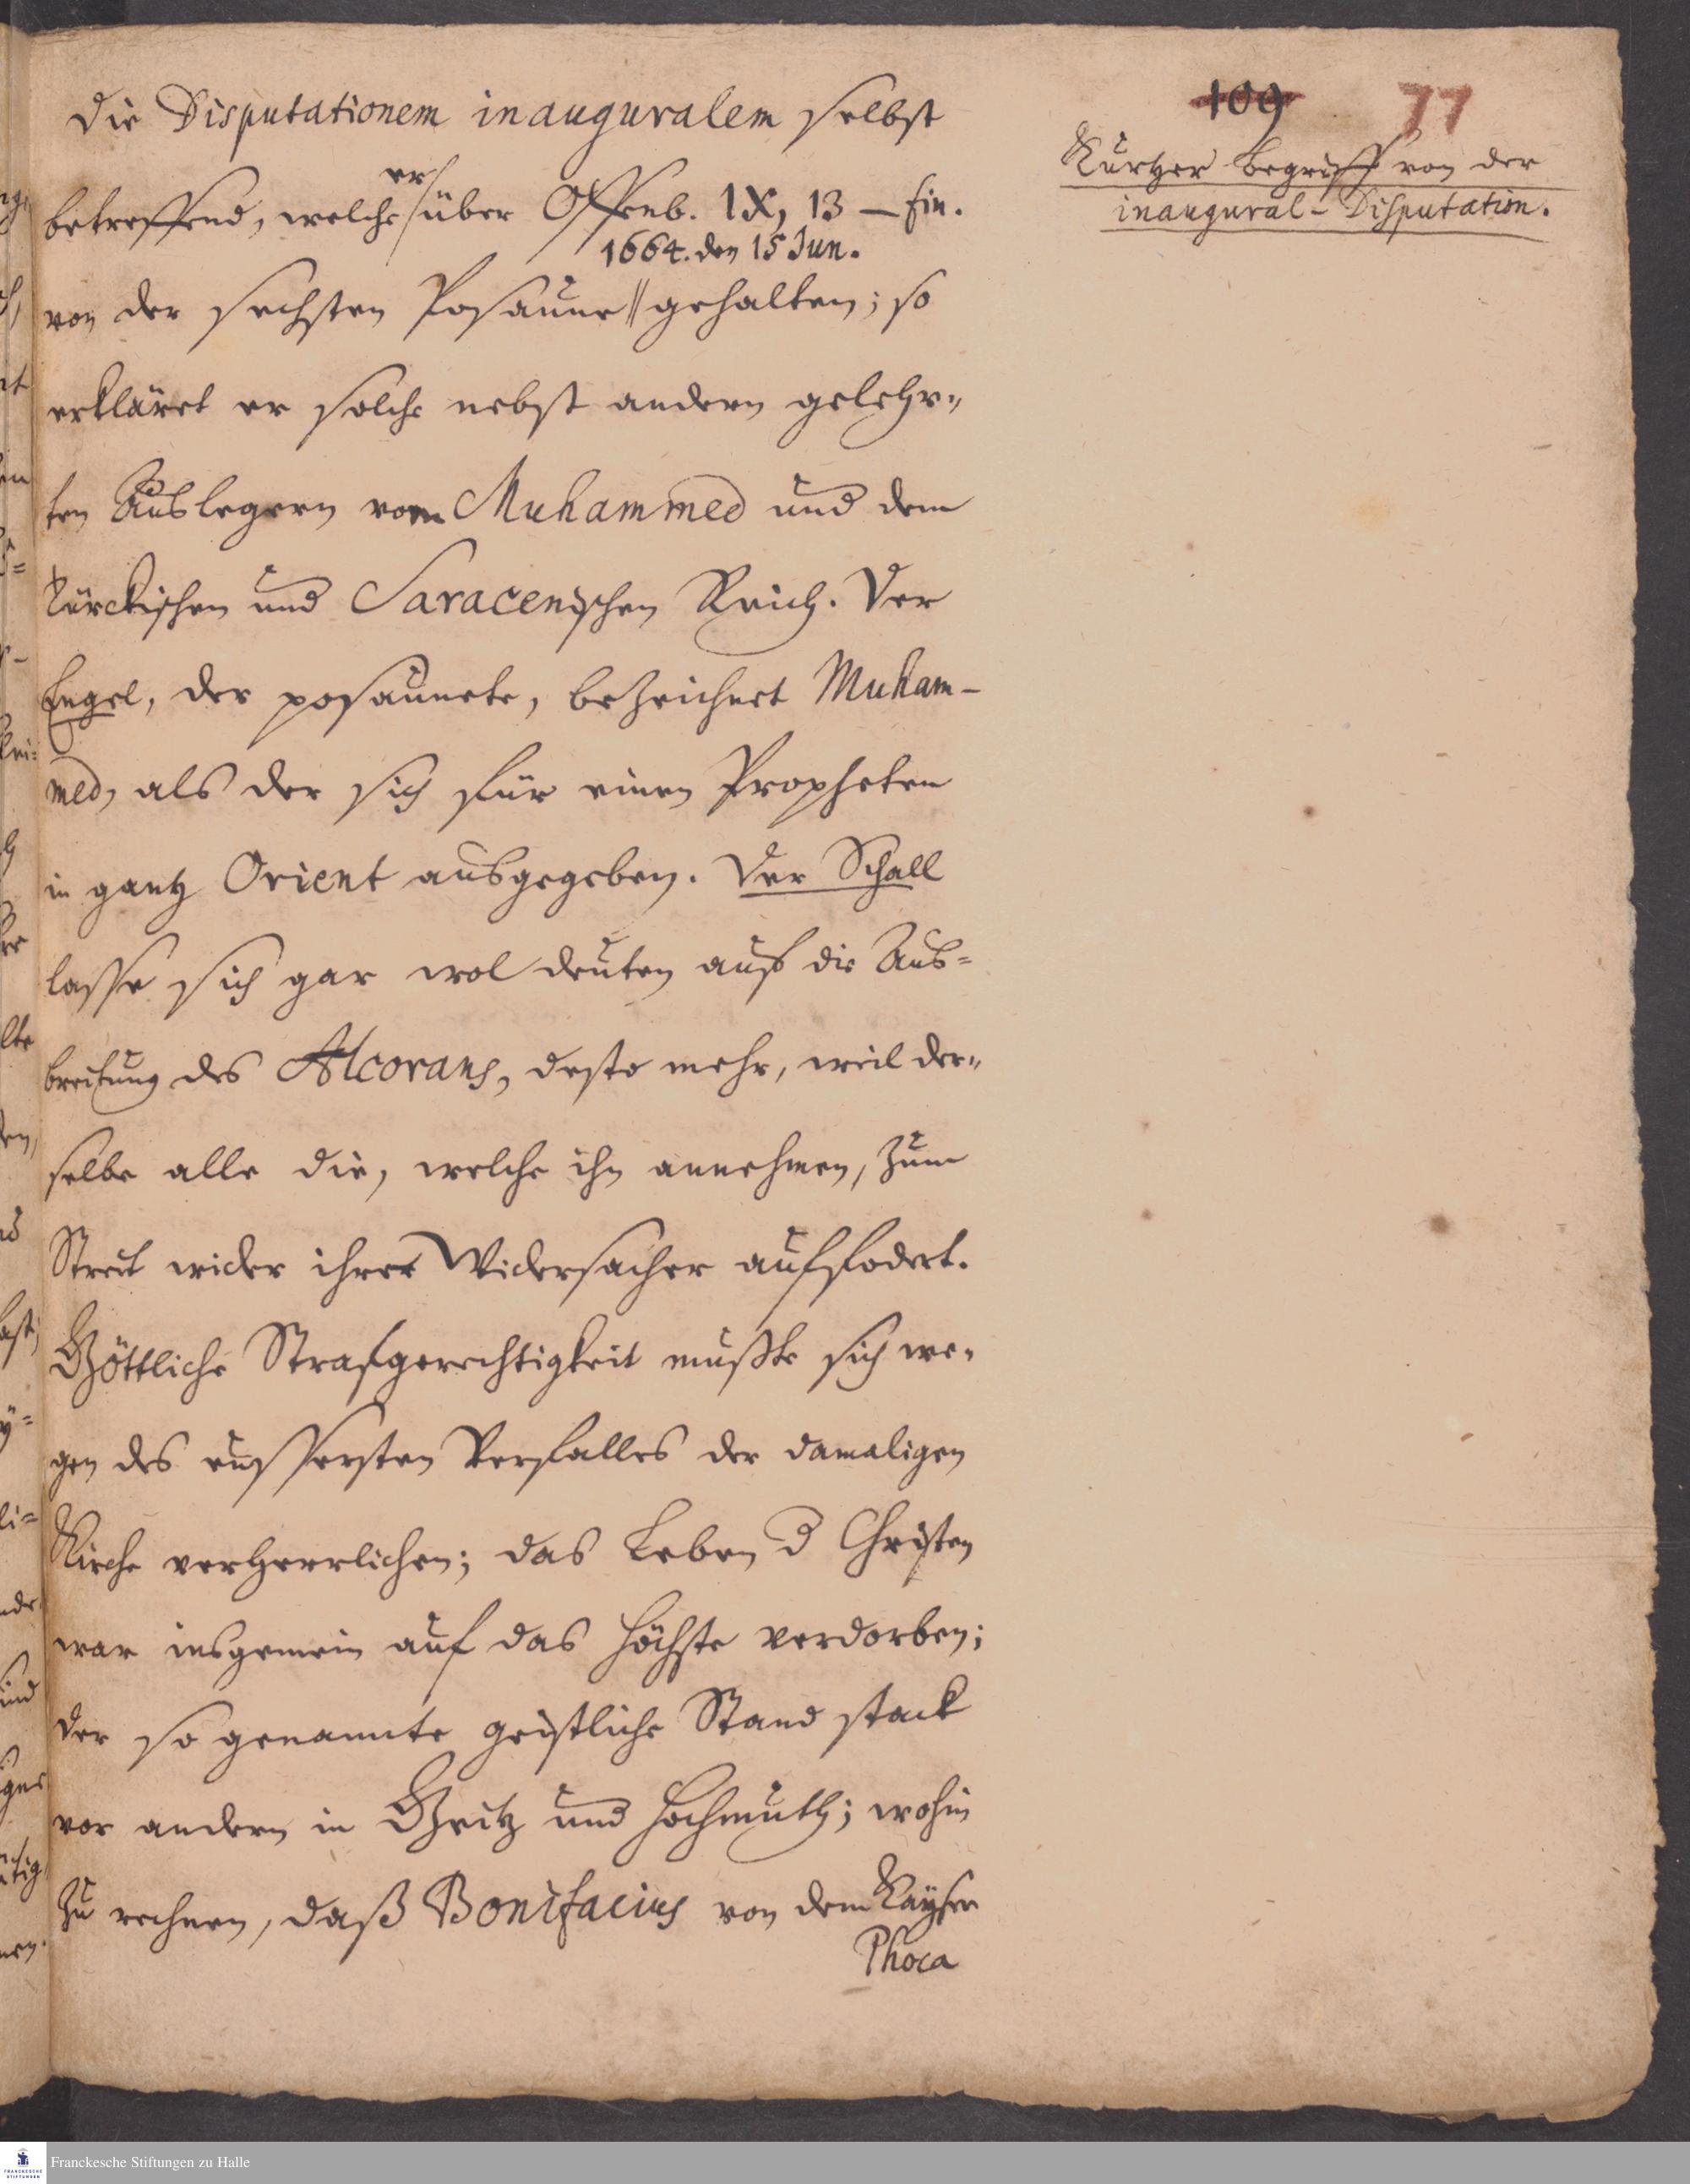 109 77
Kurtzer Begriff von der
inaugural-Disputation.
Die Disputationem inauguralem selbst
betreffend, welche er über Offenb. IX, 13 — fin.
1664. den 15 Jun.
von der sechsten Posaune gehalten; so
erkläret er solche nebst andern gelehr-
ten Auslegern vom Muhammed und dem
Türckischen und Saracenischen Reich. Der
Engel, der posaunete, bezeichnet Muham-
med, als der sich für einen Propheten
in gantz Orient ausgegeben. Der Schall
lasse sich gar wol deuten auf die Aus-
breitung des Alcorans, desto mehr, weil der-
selbe alle die, welche ihn annehmen, zum
Streit wider ihre Widersacher auffodert.
Göttliche Strafgerechtigkeit mußte sich we-
gen des eussersten Verfalles der damaligen
Kirche verherrlichen; das Leben d Christen
war insgemein auf das höchste verdorben;
der so genannte geistliche Stand stack
vor andern in Geitz und Hochmuth; wohin
zu rechnen, daß Bonifacius von dem Kayser
Phoca
Franckesche Stiftungen zu Halle